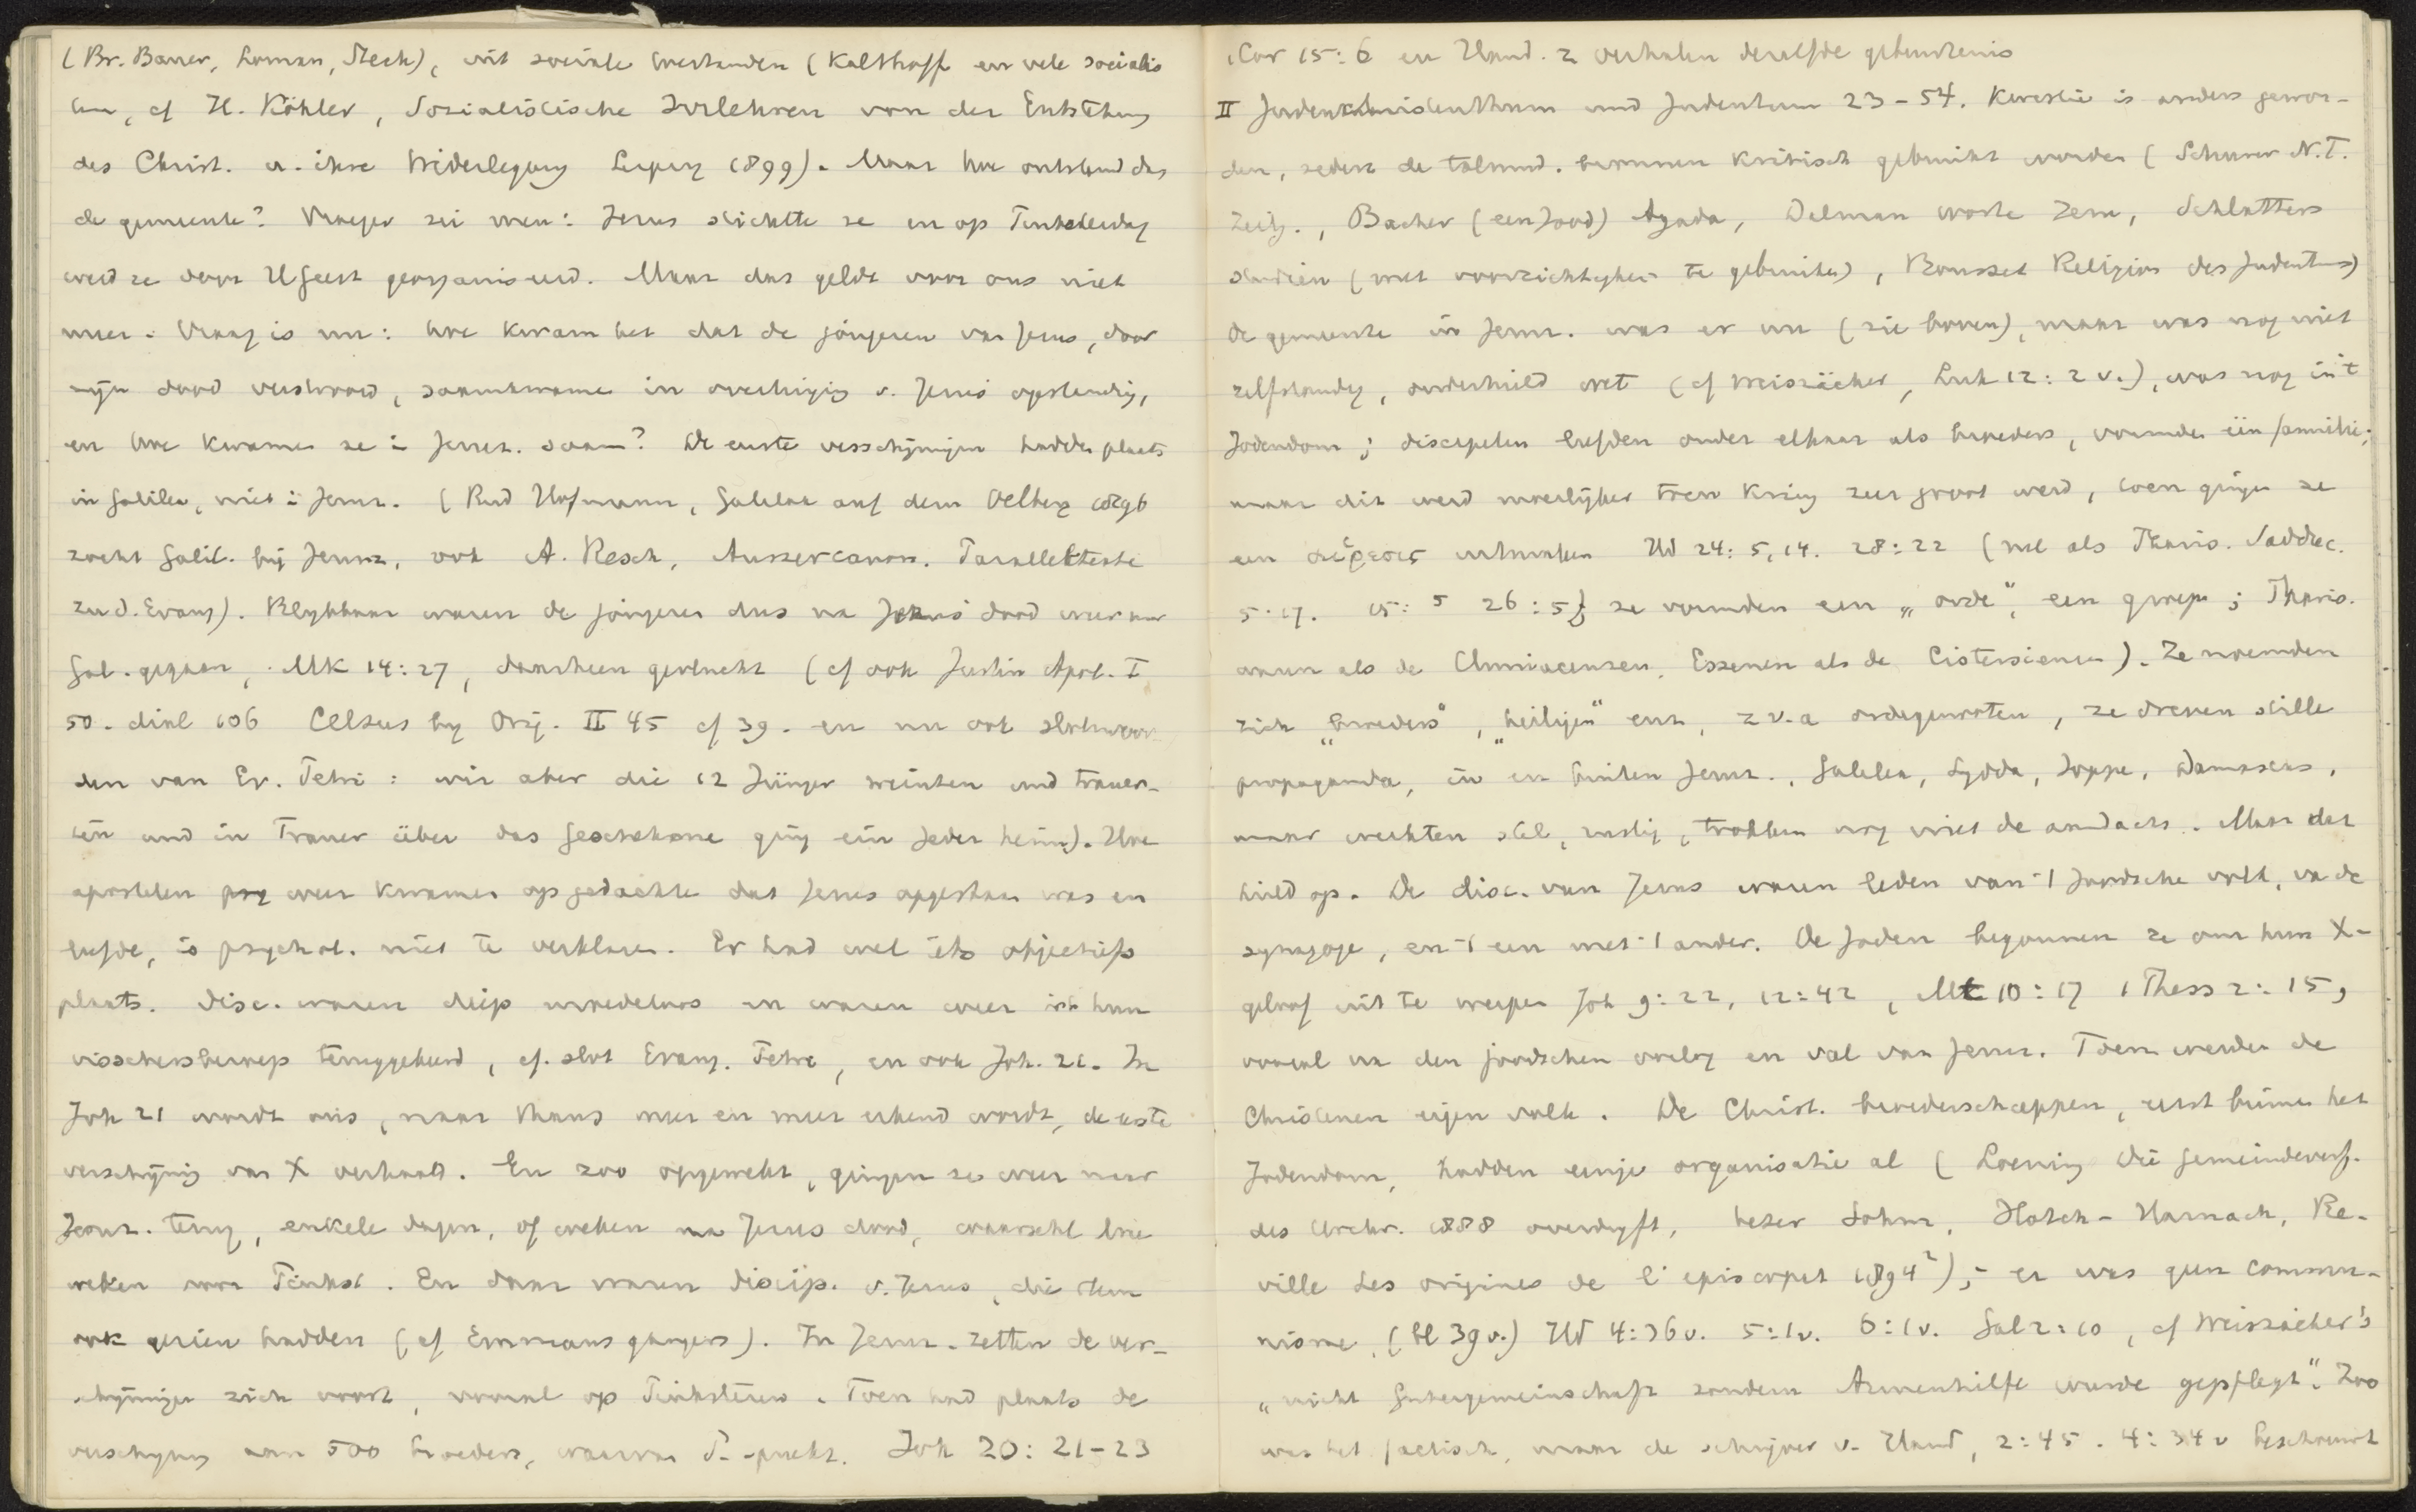 (Br. Bauer, Loman, Steck), uit sociale toestanden (Kalthoff en vele socialis
ten, cf H. Köhler, Sozialistische Irrlehren von der Entstehung
des Christ. u. ihre Widerlegung Leipzig 1899). Maar hoe ontstond dus
de gemeente? Vroeger zei men: Jezus stichtte ze en op Pinksterdag
werd ze door HGeest georganiseerd. Maar dat geldt voor ons niet
meer. Vraag is nu: hoe kwam het dat de jongeren van Jezus, door
zijn dood verstrooid, saamkwamen in overtuiging v. Jezus' opstanding,
en hoe kwamen ze i Jeruz. saam? De eerste verschijningen hadden plaats
in Galilea, niet i Jeruz. (Rud Hofmann, Galilaa auf dem Oelberg 1896
zocht Galil. bij Jeruz, ook A. Resch, Aussercanon. Paralleltexte
zu d. Evang). Blijkbaar waren de jongeren dus na Jezus' dood weer naar
Gal. gegaan, Mk 14:27, daarheen gevlucht (cf ook Justin Apol. I
50. dial 106 Celsus bij Orig. II 45 cf 39. en nu ook slotwoor
den van Ev. Petri: wir aber die 12 Jünger weinten und trauer-
ten und in Trauer über das Geschehene ging ein Jeder heim). Hoe
apostelen weer kwamen op gedachte dat Jezus opgestaan was en
leefde, is psychol. niet te verklaren. Er had wel iets objectiefs
plaats. Disc. waren diep moedeloos en waren weer tot hun
visschersberoep teruggekeerd, cf. slot Evang. Petri, en ook Joh. 21. In
Joh 21 wordt ons, naar thans meer en meer erkend wordt, de eerste
verschijning van X verhaald. En zoo opgewekt, gingen ze weer naar
Jeruz. terug, enkele dagen, of weken na Jezus dood, waarschl drie
weken voor Pinkst. En daar waren discip. v. Jezus, die Hem
ook gezien hadden (cf Emmausgangers). In Jeruz. zetten de ver-
schijningen zich voort, vooral op Pinksteren. Toen had plaats de
verschijning aan 500 broeders, waarvan P. spreekt. Joh 20:21-23
1 Cor 15:6 en Hand. 2 verhalen dezelfde gebeurtenis
II Judenchristenthum und Judentum 23-54. Kwestie is anders gewor-
den, sedert de talmud. bronnen kritisch gebruikt worden (Schurer N.T.
Zeitg., Bacher (een Jood) Agada, Dalman Worte Jesu, Schlatters
studien (met voorzichtigheid te gebruiken), Bousset Religion des Judentums)
De gemeente in Jeruz. was er nu (zie boven), maar was nog niet
zelfstandig, onderhield wet (cf Weiszäcker, Luk 12:2 v.), was nog in 't
Jodendom; discipelen leefden onder elkaar als broeders, vormden één familie;
maar dit werd moeilijker toen kring zeer groot werd, toen gingen ze
een αἵρεσις uitmaken Hd 24:5,14. 28:22 (net als Phariz. Sadduc.
5:17. 15:5 26:5); ze vormden een „orde”, een groep; Phariz.
waren als de Cluniacensen, Essenen als de Cisterciensen). Ze noemden
zich „broeders”, „heiligen” enz, z.v.a ordegenooten, ze dreven stille
propaganda, in en buiten Jeruz., Galilea, Lydda, Joppe, Damascus,
maar werkten stil, rustig, trokken nog niet de aandacht. Maar dat
hield op. De disc. van Jezus waren leden van 't Joodsche volk, van de
synagoge, en 't een met 't ander. De Joden begonnen ze om hun X-
geloof uit te werpen Joh 9:22, 12:42, Mt 10:17 1 Thess 2:15,
vooral na den joodschen oorlog en val van Jeruz. Toen werden de
Christenen eigen volk. De Christ. broederschappen, eerst binnen het
Jodendom, hadden eenige organisatie al (Loening Die Gemeindeverf.
des Urchr. 1888 overdrijft, beter Sohm, Hatch-Harnack, Re-
ville Les origines de l'episcopat 1894²); er was geen commu-
nisme, (bl 39 v.) Hd 4:36v. 5:1v. 6:1v. Gal 2:10, cf Weiszäcker's
„nicht Gütergemeinschaft sondern Armenhilfe wurde gepflegt”. Zoo
was het factisch, maar de schrijver v. Hand, 2:45. 4:34v beschouwt